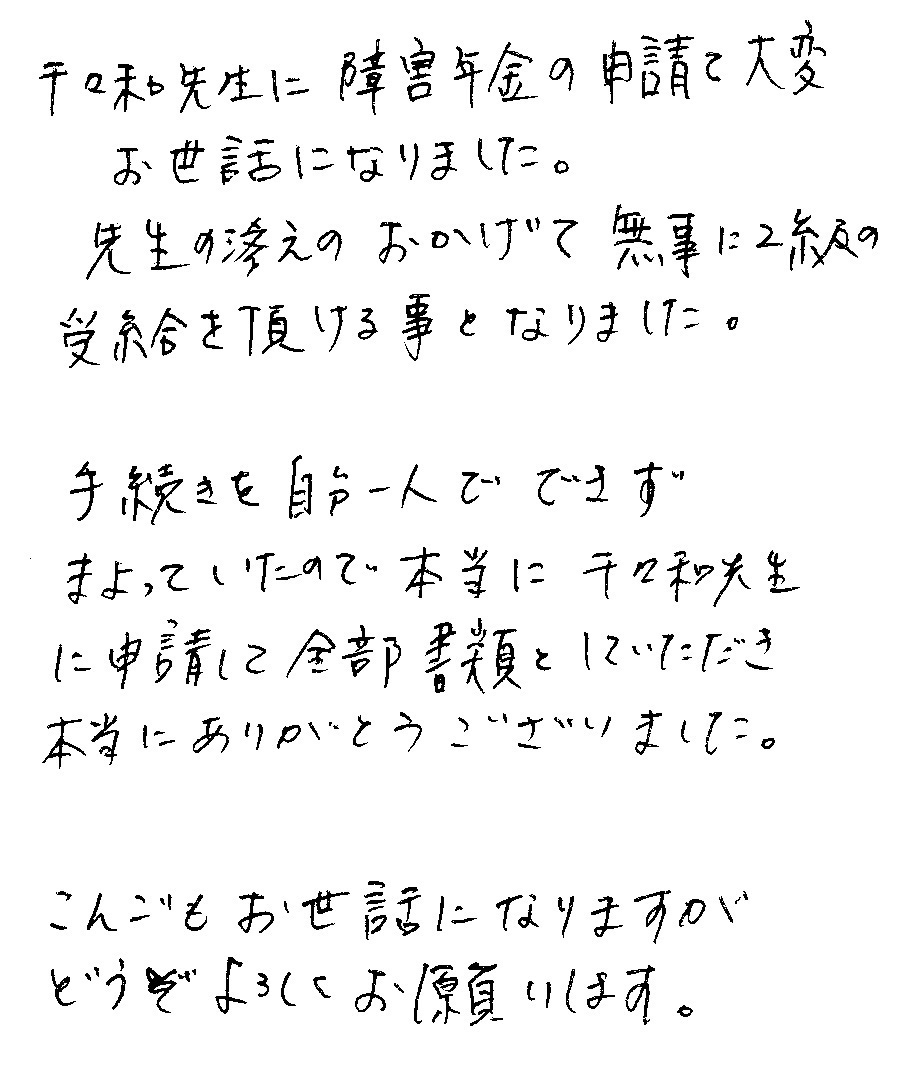 千々和先生に障害年金の申請で大変
お世話になりました。
先生の添えの おかげで 無事に2級の
受給を頂ける事となりました。
手続きを自分一人で できず
まよっていたので本当に 千々和先生
に申請して全部書類としていただき
本当にありがとうございました。
こんごもお世話になりますが
どうぞよろしくお願いします。